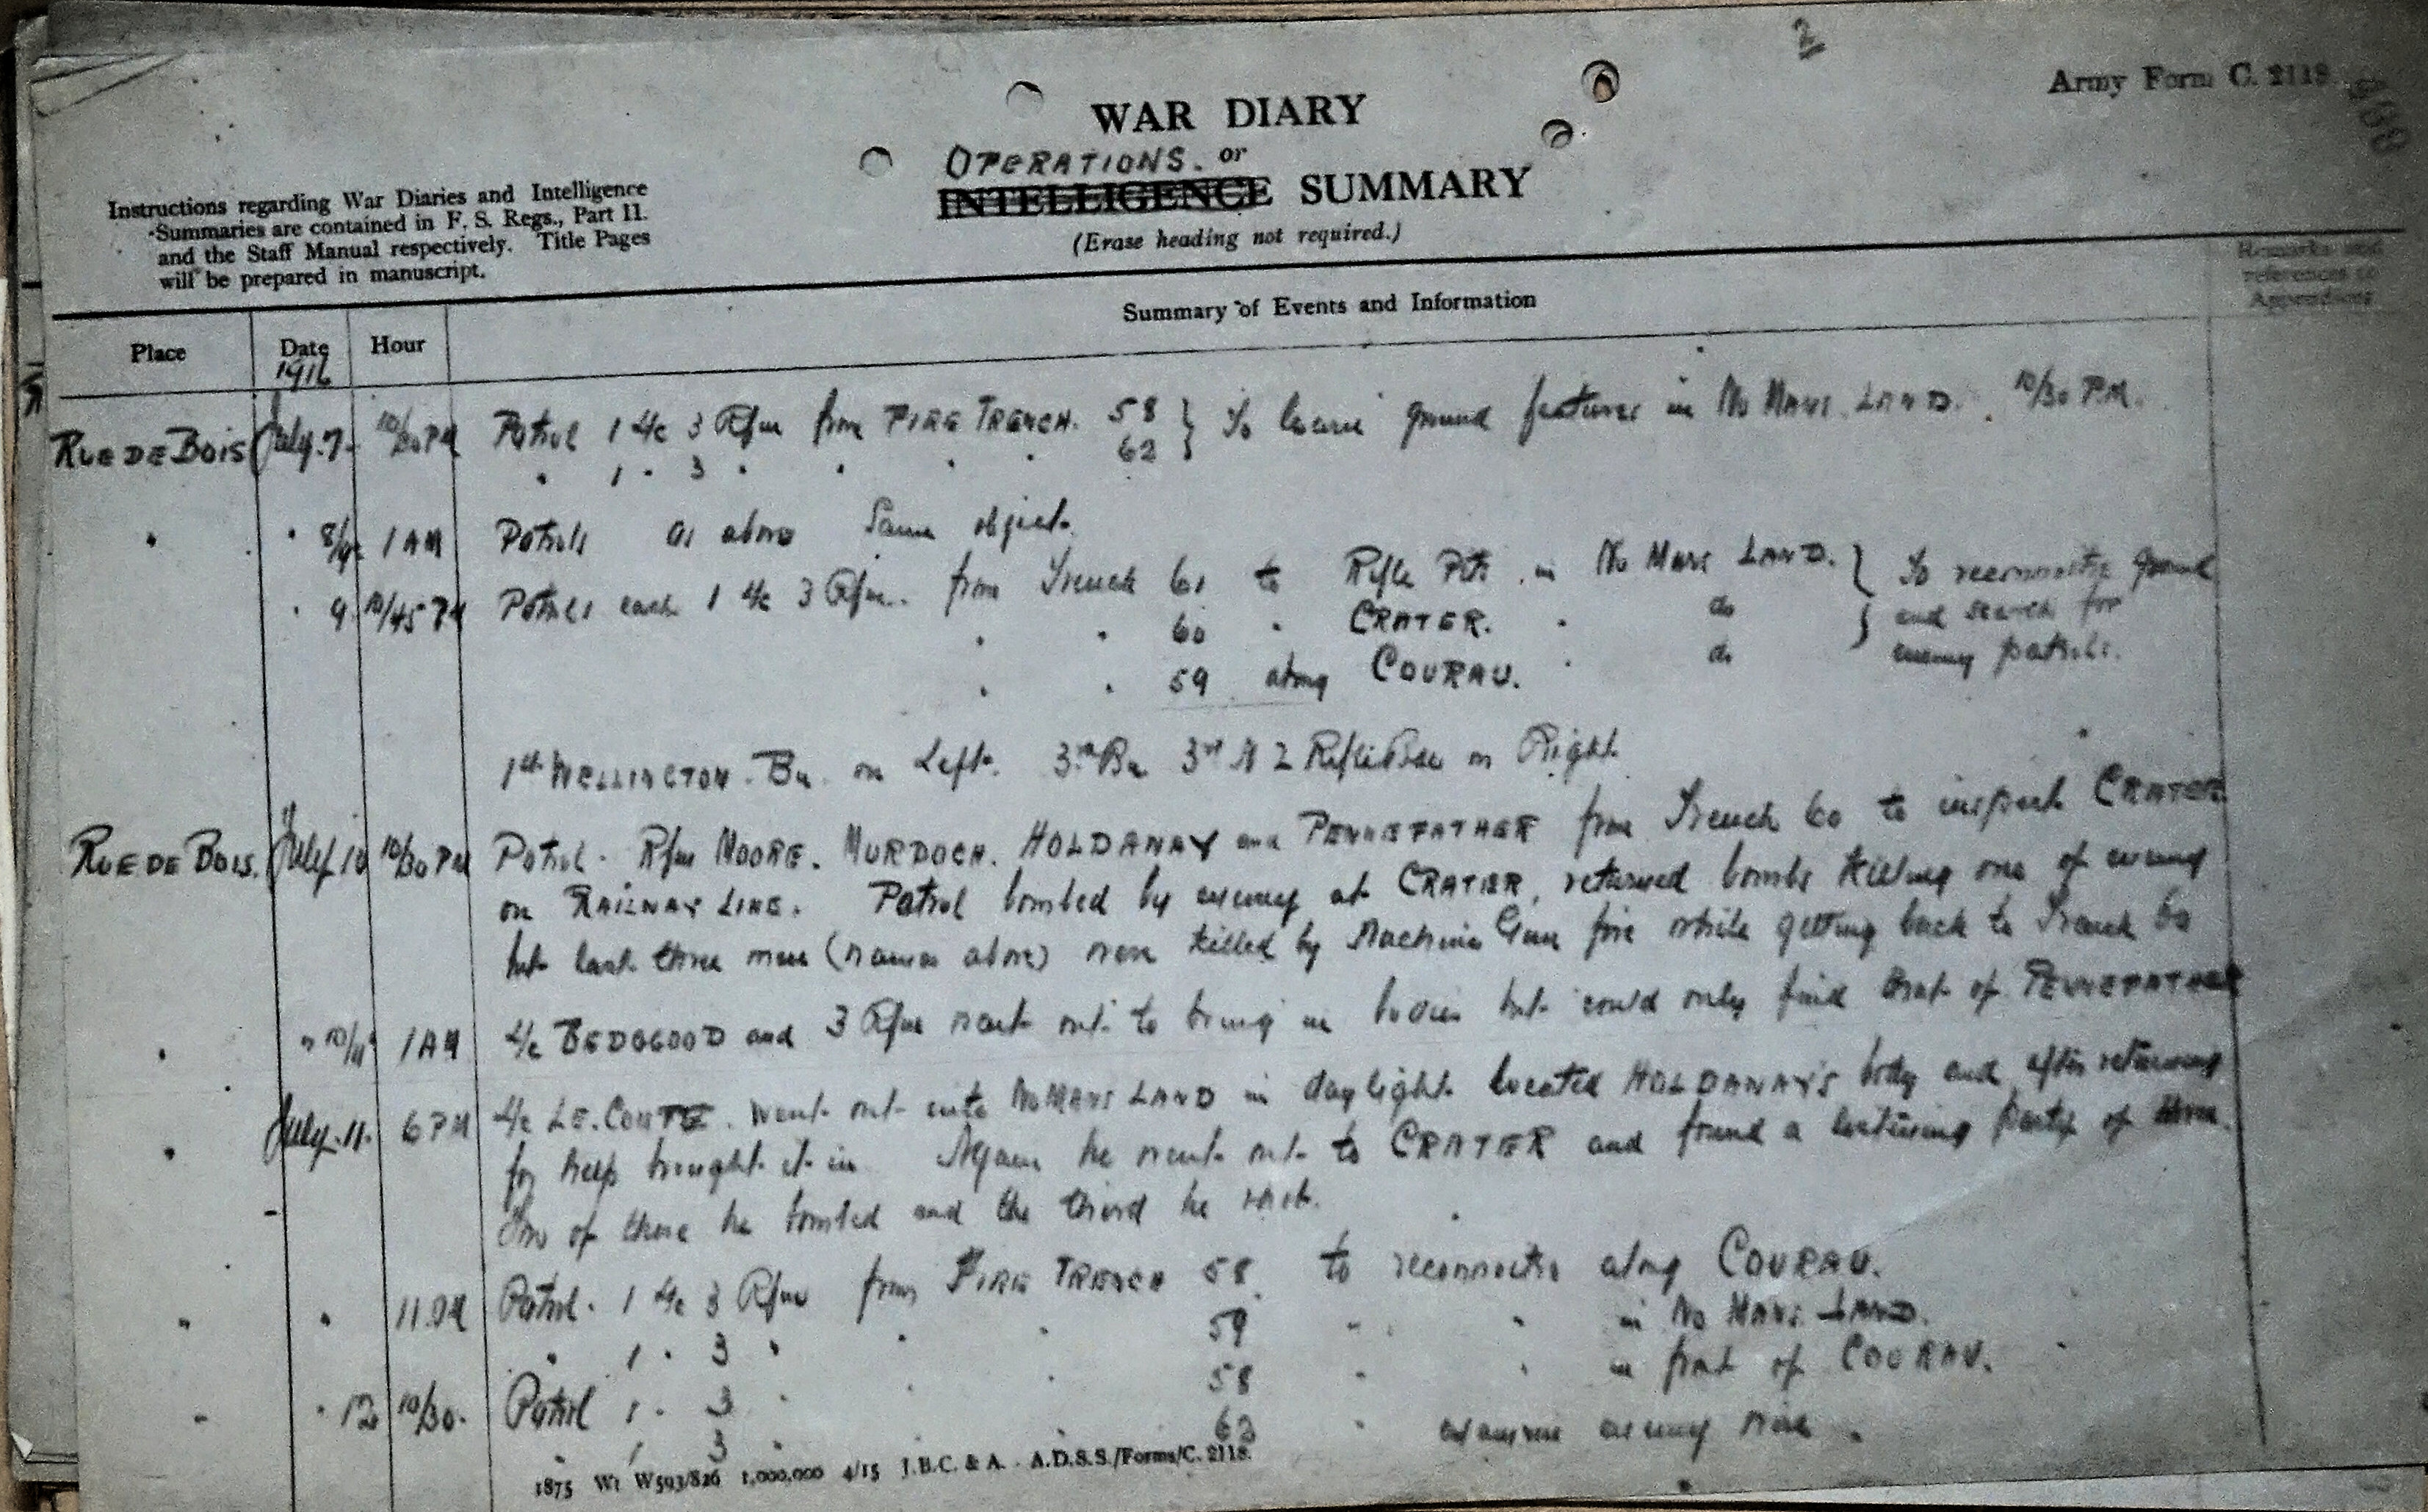 2
Army Form C. 2118
WAR DIARY
OPERATIONS. or
INTELLIGENCE SUMMARY
(Erase heading not required.)
Instructions regarding War Diaries and Intelligence
Summaries are contained in F. S. Regs., Part II.
and the Staff Manual respectively. Title Pages
will be prepared in manuscript.
Remarks and
references to
Appendices
Summary of Events and Information
Place Date Hour
1916
RUE DE BOIS July.7. 10/30 PM Patrol 1 L/c 3 Rfm from FIRE TRENCH. 58 } To learn ground features in No MANS LAND. 10/30 P.M.
" 1 " 3 " " " " 62 }
" " 8/9 1 AM Patrols as above Same object.
" 9 10/45 PM Patrols each 1 L/c 3 Rfm. from Trench 61 to Rifle Pits in No Mans LAND. } To reconnoitre ground
" " 60 " CRATER. " do } and search for
" " 59 along COURAU. " do enemy patrols.
1st WELLINGTON. Bn. on Left. 3rd Bn 3rd N Z Rifle Bde on Right
RUE DE BOIS. July 10 10/30 PM Patrol. Rfm MOORE. MURDOCH. HOLDAWAY and PENNEFATHER from Trench 60 to inspect CRATER
on RAILWAY LINE. Patrol bombed by enemy at CRATER, returned bombs killing one of enemy
but last three men (names above) were killed by Machine Gun fire while getting back to Trench 60
" " 10/11 1 AM L/c BEDGGOOD and 3 Rfm went out to bring in bodies but could only find that of PENNEFATHER
" July.11. 6 PM L/c LE.COMTE. went out into No MANS LAND in daylight located HOLDAWAY'S body and after returning
for help brought it in. Again he went out to CRATER and found a listening party of three.
Two of these he bombed and the third he shot.
" " 11 PM Patrol. 1 L/c 3 Rfm from FIRE TRENCH 58 to reconnoitre along COURAU.
" 1 " 3 " " " 59 " " in No MANS LAND.
" " 12 10/30. Patrol 1 " 3 " " " 58 " " in front of COURAU.
" 1 3 " " 62 " examine enemy wire.
1875 Wt W593/826 1,000,000 4/15 J.B.C. & A. A.D.S.S./Forms/C. 2118.